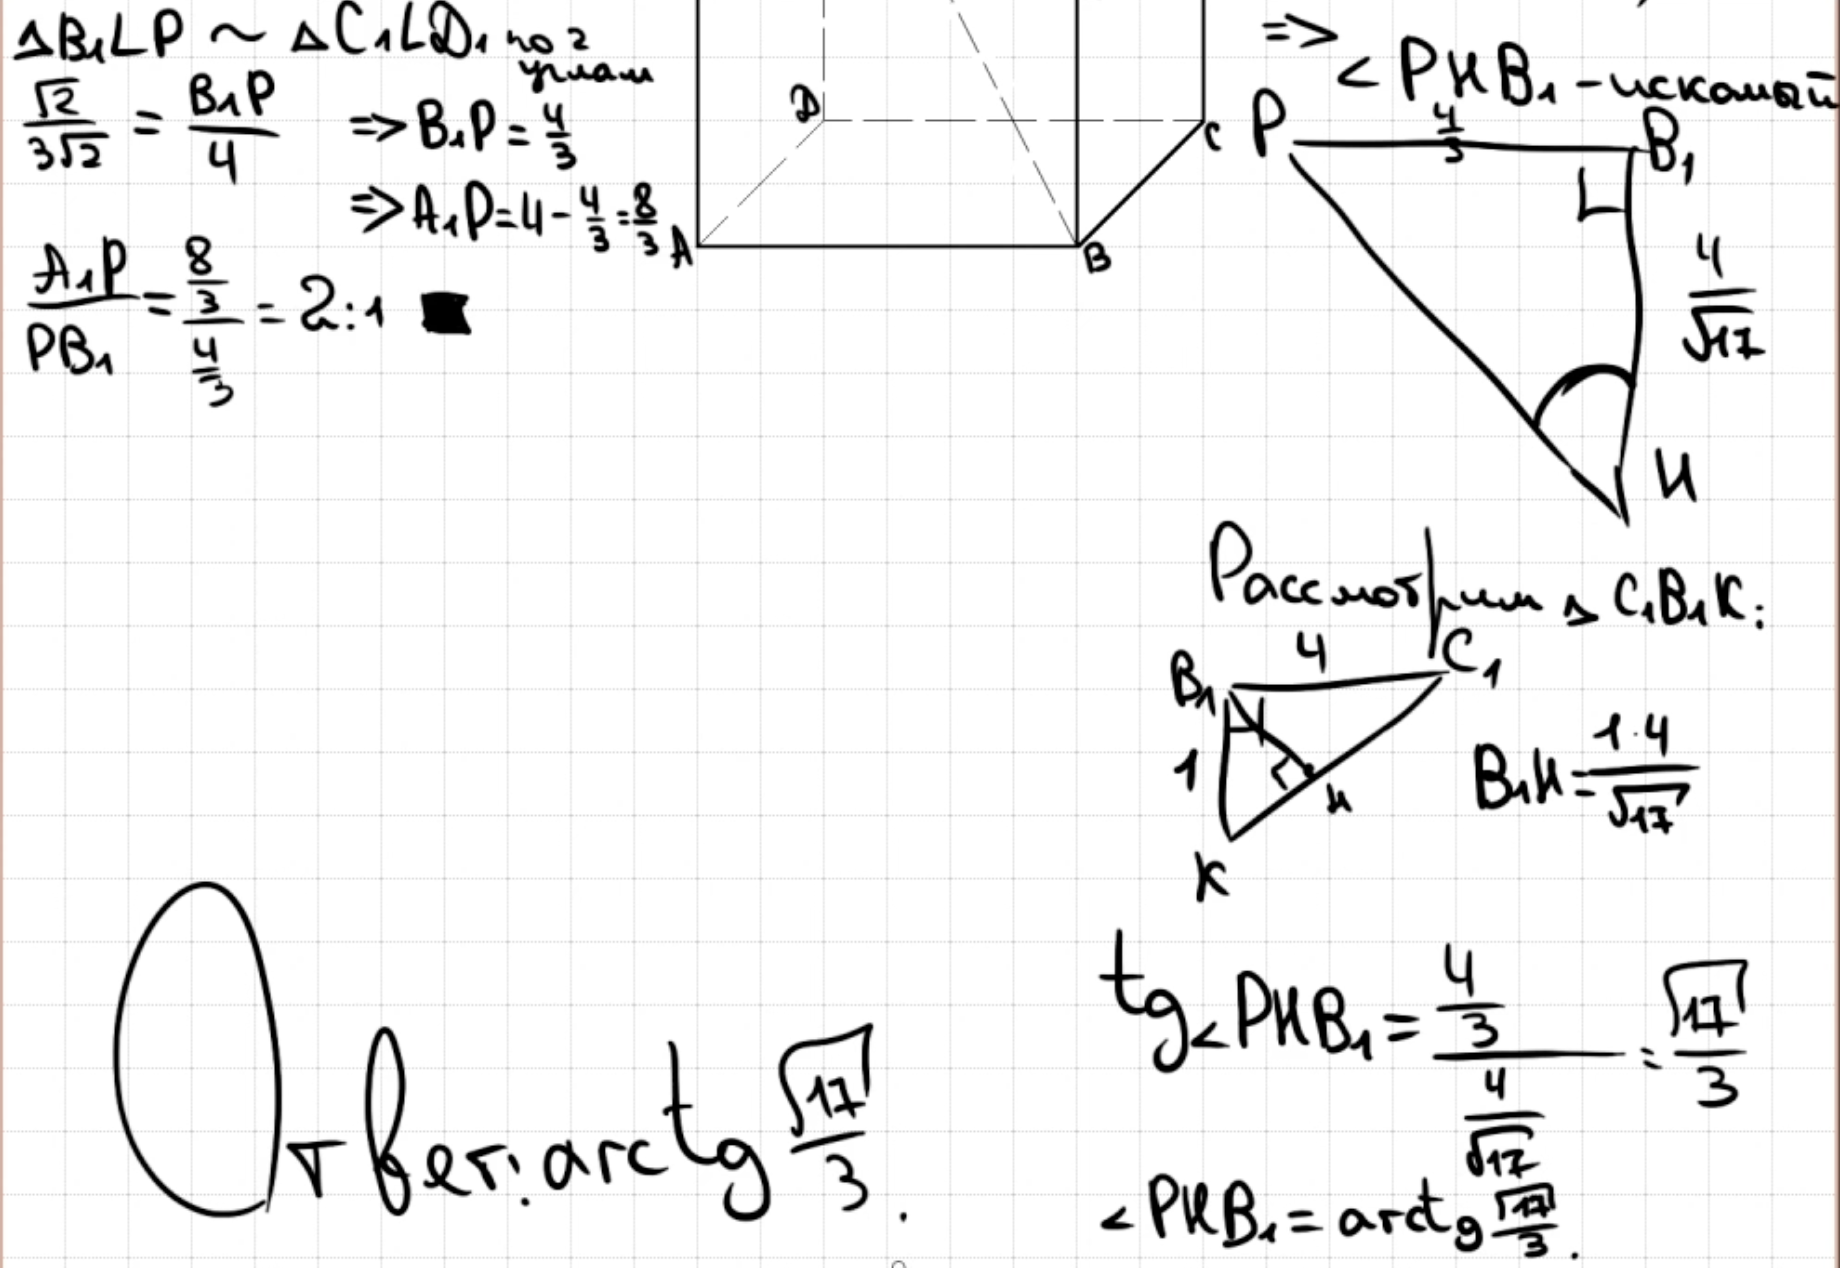 △B₁LP ~ △C₁LD₁ по 2
углам
√2/3√2 = B₁P/4 => B₁P = 4/3
=> A₁P = 4 - 4/3 = 8/3
A₁P/PB₁ = 8/3 / 4/3 = 2:1 ■
D
C
A
B
=>
< PHB₁ - искомый
P
4/3
B₁
4/√17
H
Рассмотрим △ C₁B₁K:
B₁
4
C₁
1
H
K
B₁H = 1·4/√17
tg < PHB₁ = 4/3 / 4/√17 = √17/3
< PHB₁ = arctg √17/3.
Ответ: arctg √17/3.